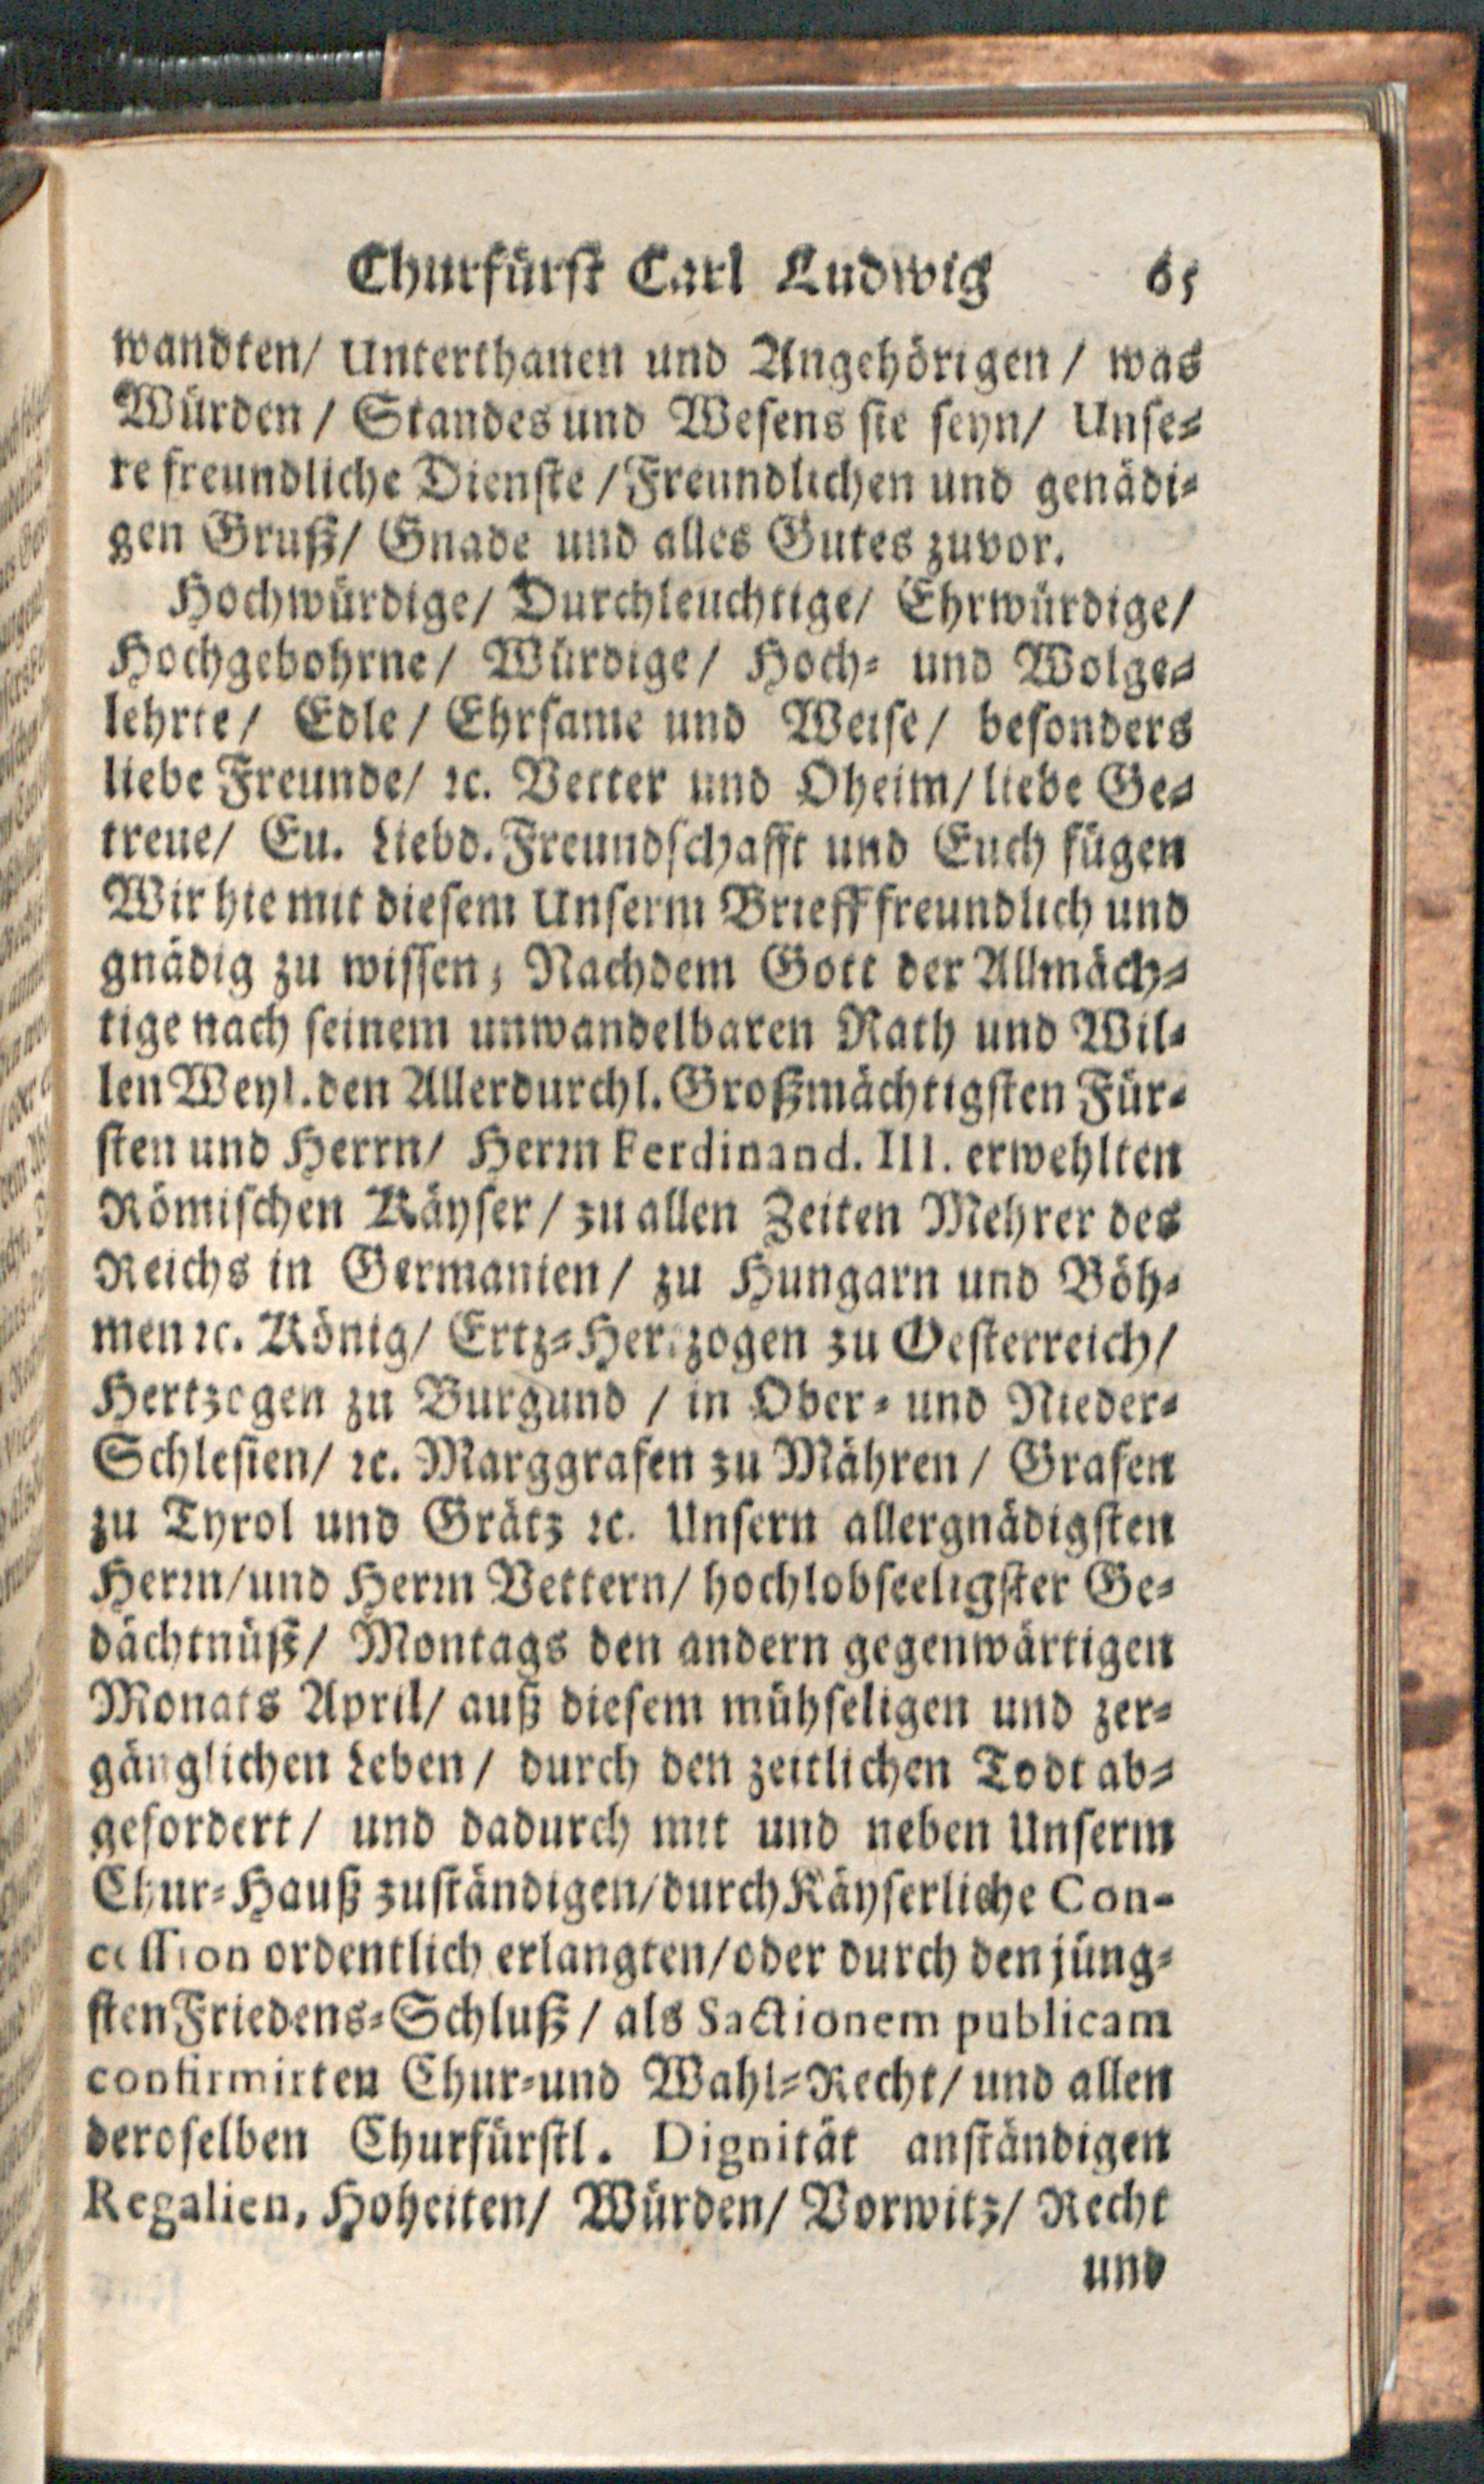 Churfürst Carl Ludwig 65
wandten/ Unterthanen und Angehörigen / was
Würden / Standes und Wesens sie seyn/ Unse-
re freundliche Dienste / Freundlichen und genädi-
gen Gruß/ Gnade und alles Gutes zuvor.
Hochwürdige/ Durchleuchtige/ Ehrwürdige/
Hochgebohrne/ Würdige/ Hoch- und Wolge-
lehrte/ Edle / Ehrsame und Weise/ besonders
liebe Freunde/ ꝛc. Vetter und Oheim/ liebe Ge-
treue/ Eu. Liebd. Freundschafft und Euch fügen
Wir hiemit diesem Unserm Brieff freundlich und
gnädig zu wissen; Nachdem Gott der Allmäch-
tige nach seinem unwandelbaren Rath und Wil-
len Weyl. den Allerdurchl. Großmächtigsten Für-
sten und Herrn/ Herrn Ferdinand. III. erwehlten
Römischen Käyser / zu allen Zeiten Mehrer des
Reichs in Germanien / zu Hungarn und Böh-
men ꝛc. König/ Ertz-Hertzogen zu Oesterreich/
Hertzogen zu Burgund / in Ober- und Nieder-
Schlesien/ ꝛc. Marggrafen zu Mähren / Grafen
zu Tyrol und Grätz ꝛc. Unsern allergnädigsten
Herrn/ und Herrn Vettern/ hochlobseeligster Ge-
dächtnüß/ Montags den andern gegenwärtigen
Monats April/ auß diesem mühseligen und zer-
gänglichen Leben / durch den zeitlichen Todt ab-
gefordert / und dadurch mit und neben Unserm
Chur-Hauß zuständigen/ durch Käyserliche Con-
cession ordentlich erlangten/ oder durch den jüng-
sten Friedens-Schluß / als Sactionem publicam
confirmirten Chur-und Wahl-Recht/ und allen
deroselben Churfürstl. Dignität anständigen
Regalien, Hoheiten/ Würden/ Vorwitz/ Recht
und